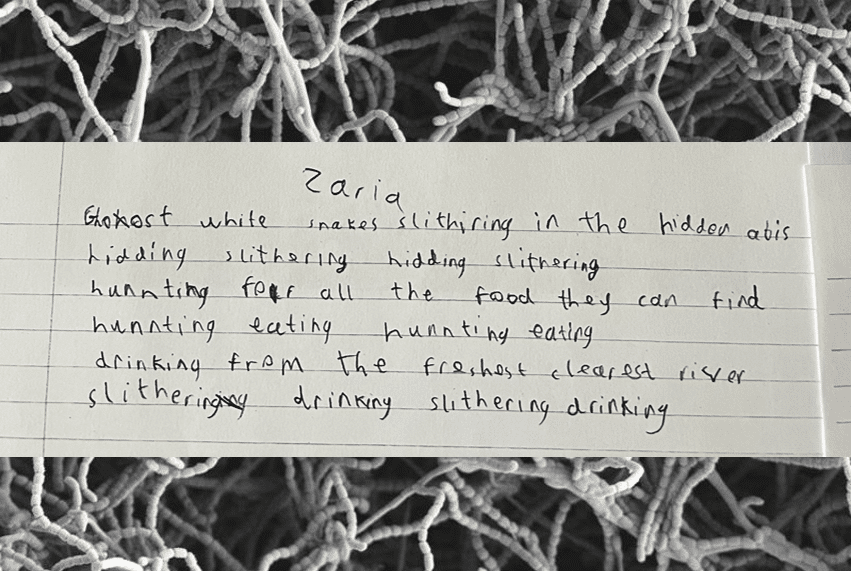 Zaria
Ghost white snakes slithiring in the hidden abis
hidding slithering hidding slithering
hunnting for all the food they can find
hunnting eating hunnting eating
drinking from the freshest clearest river
slithering drinking slithering drinking